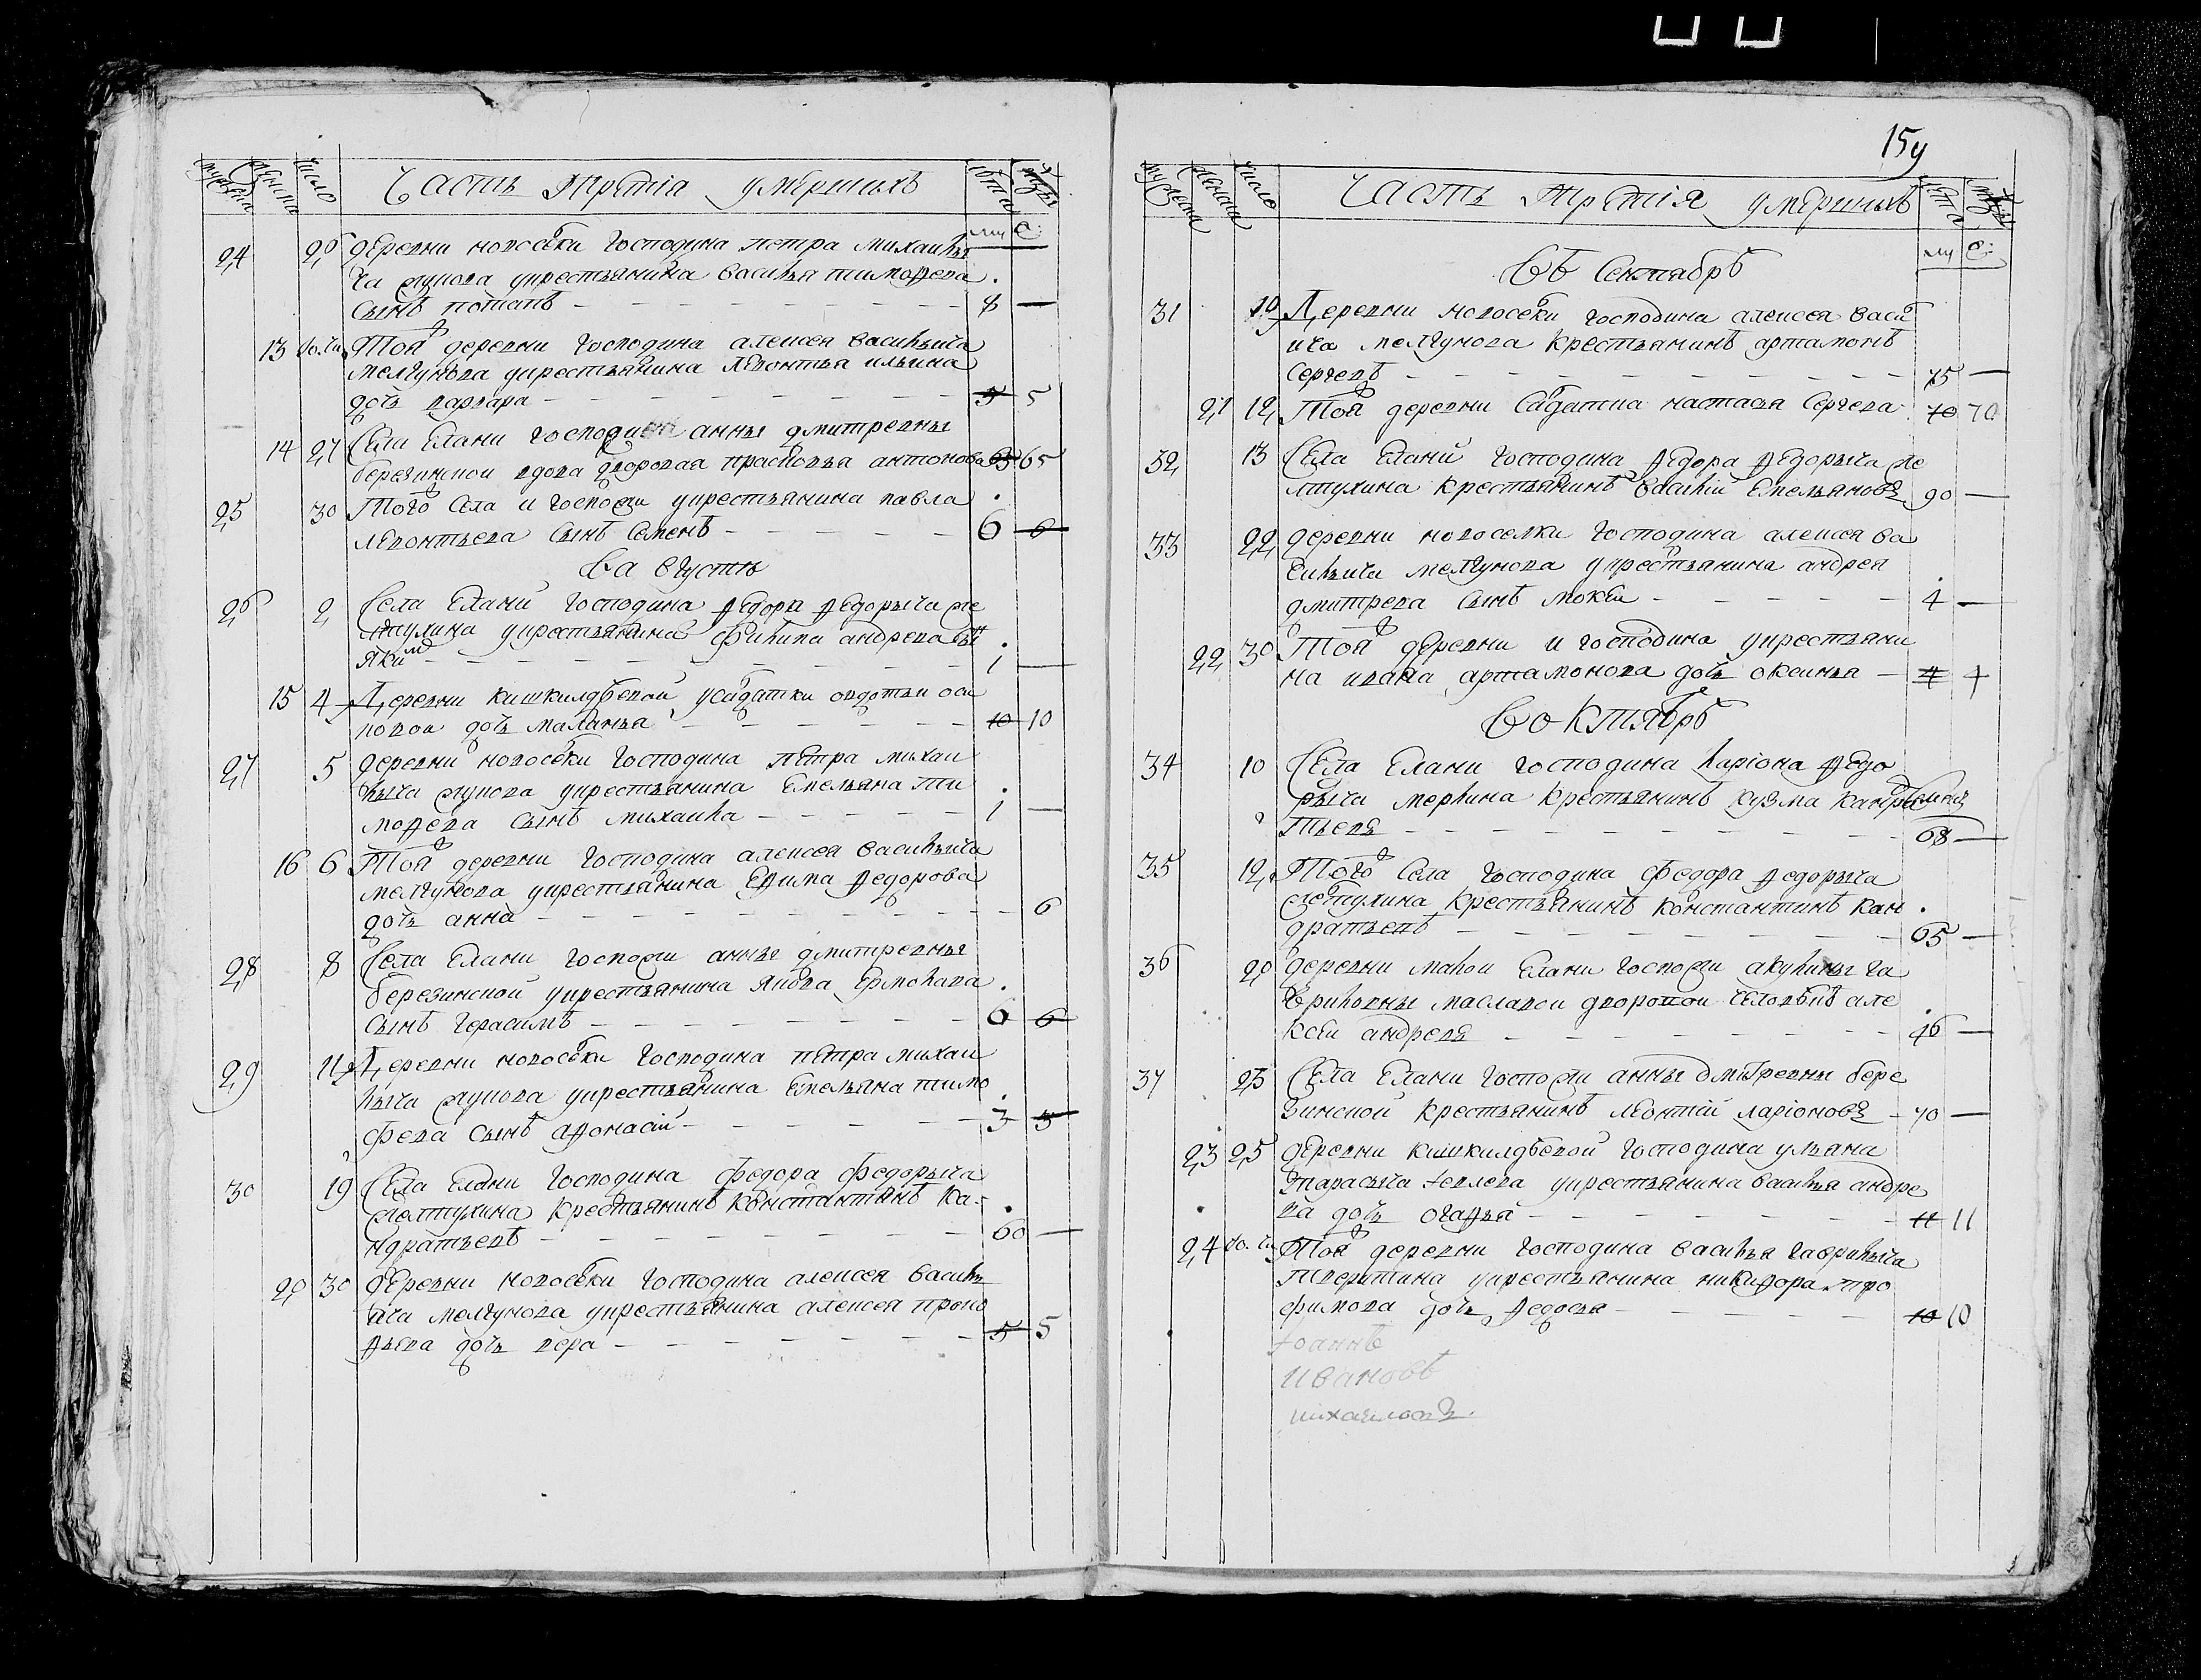 мужеска женска число Часть третія умершыхъ лѣта
му С:
24 26 деревни новоселки господина петра михаилы
ча укрестьянина василья тимофеева
сынъ потапъ 8 —
13 Той деревни господина алексея василъича
мелгунова укрестьянина левонтья ильина
дочь варвара 5 5
14 27 Села Елани господина анны дмитревны
березинской вдова дворовая прасковья антонова 65 65
25 30 Того Села и госпожи укрестьянина павла
левонтьева сынъ Семенъ 6 6
Въ августѣ
26 2 Села Елани господина Федора Федорыча же
лтухина укрестьянина Филипа андреева сынъ
яким 1 —
15 4 Деревни кишкилдѣевой усолдатки овдотьи оси
повои дочь маланья 10 10
27 5 деревни новоселки господина петра михаи
лыча укрестьянина Емельяна ти
мофеева сынъ михаила 1 —
16 6 Той деревни господина алексея василъича
мелгунова укрестьянина Ефима Федорова
дочь анна 6
28 8 Села Елани госпожи анны дмитревны
березинской укрестьянина якова Ермолаева
сынъ герасимъ 6 6
29 11 Деревни новоселки господина петра михаи
лыча укрестьянина Емельяна тимо
феева сынъ афонасій 3 3
30 19 Села Елани господина федора федорыча
желтухина крестьянинъ константинъ ка-
ндратьевъ 60 —
20 30 деревни новоселки господина алексея василь
ича мелгунова укрестьянина алексея проко
фьева дочь вера 5 5
15у
мужеска женска число Часть третія умершыхъ лѣта
му С:
Въ Сентябрѣ
31 10 Деревни новоселки господина алексея васил
ича мелгунова крестьянинъ артамонъ
Сергеевъ 75 —
21 12 Той деревни Салдатка настасья Сергеева 70 70
32 13 Села Елани господина Федора Федорыча же
лтухина крестьянинъ василій Емельяновъ 90 —
33 22 деревни новоселки господина алексея ва
силъича мелгунова укрестьянина андрея
дмитреева сынъ мокеи 4 —
22 30 Той деревни и господина укрестьяни
на ивана артамонова дочь оксинья 4 4
Въ октябрѣ
34 10 Села Елани господина ларіона Федо
рыча мерлина крестьянинъ кузма кандра
тьевъ 68 —
35 12 Того Села господина федора Федорыча
желтухина крестьянинъ константинъ кан
дратьевъ 65 —
36 20 деревни малои Елани госпожи акулины га
врилoвны масловои дворовой человѣкъ але
ксеи андреевъ 46 —
37 23 Села Елани госпожи анны дмитревны бере
зинской крестьянинъ леонтій ларіоновъ 70 —
23 25 деревни кишкилдѣевой господина ульяна
тарасыча укрестьянина василья андре
ева дочь огафья 11 11
24 Той деревни господина василья гаврилыча
тверитина укрестьянина никифора тро
фимова дочь федосья 10 10
Іоаннъ
ивановъ
михаиловъ.